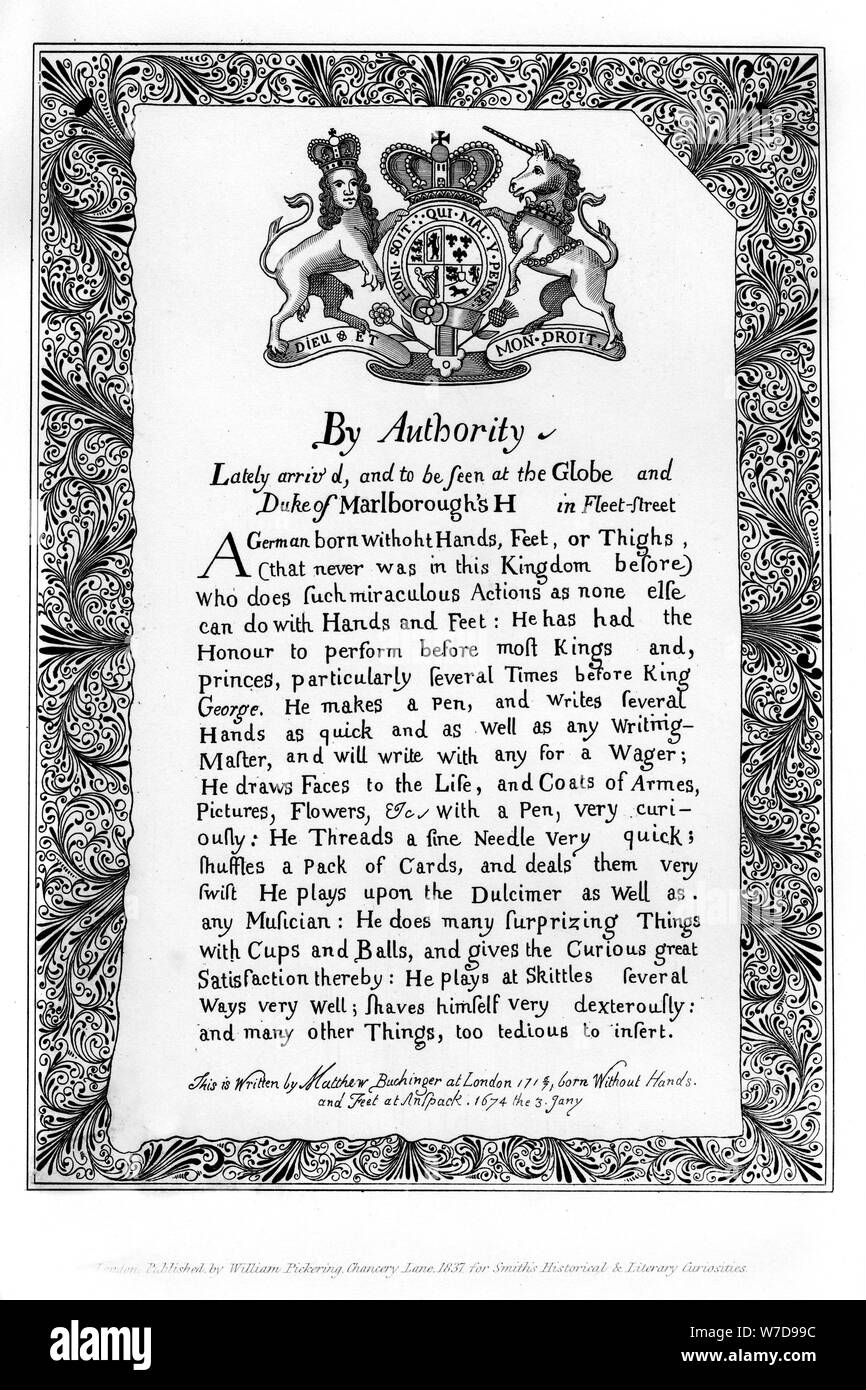 HONI·SOIT·QUI·MAL·Y·PENSE
DIEU ET MON·DROIT.
By Authority
Lately arriv'd, and to be ſeen at the Globe and
Duke of Marlborough's H in Fleet-ſtreet
A German born withoht Hands, Feet, or Thighs,
(that never was in this Kingdom before)
Who does ſuch miraculous Actions as none elſe
can do with Hands and Feet: He has had the
Honour to perform before moſt Kings and,
princes, particularly ſeveral Times before King
George. He makes a Pen, and Writes ſeveral
Hands as quick and as Well as any Writnig-
Maſter, and will write with any for a Wager;
He draws Faces to the Life, and Coats of Armes,
Pictures, Flowers, &c with a Pen, very curi-
ouſly: He Threads a fine Needle very quick;
ſhuffles a Pack of Cards, and deals them very
ſwift He plays upon the Dulcimer as Well as.
any Muſician: He does many ſurprizing Things
with Cups and Balls, and gives the Curious great
Satisfaction thereby: He plays at Skittles ſeveral
Ways very Well; ſhaves himſelf very dexterouſly:
and many other Things, too tedious to inſert.
This is Written by Matthew Buchinger at London born Without Hands.
and Feet at Anſpack. 1674 the 3. Jany
London, Published, by William Pickering, Chancery Lane, 1837 for Smith's Historical & Literary Curiosities.
alamy
Image ID: W7D99C
www.alamy.com